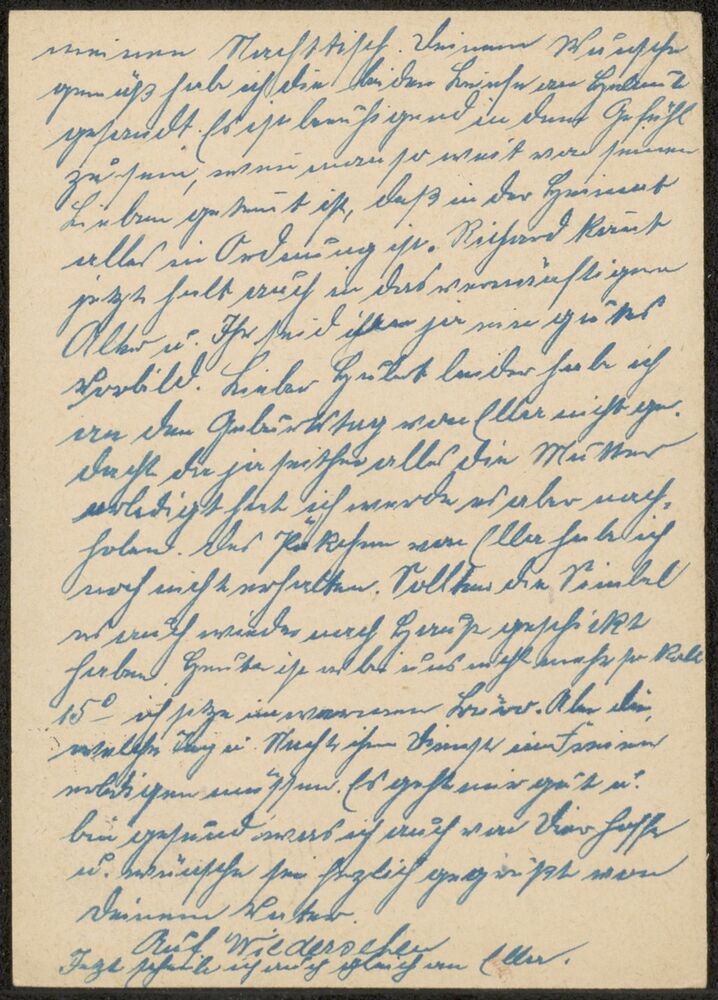 meinen Nachttisch. Deinem Wunsche
gemäß habe ich die beiden Briefe an Helmut
gesandt. Es ist beruhigend in dem Gefühl
zu sein, wenn man so weit von seinen
Lieben getrennt ist, daß in der Heimat
alles in Ordnung ist. Richard kommt
jetzt halt auch in das vernünftigere
Alter u. Ihr seid ihm ja ein gutes
Vorbild. Lieber Hubert leider habe ich
an den Geburtstag von Ella nicht ge-
dacht da ja seither alles die Mutter
erledigt hat ich werde es aber nach-
holen. Das Päkchen von Ella habe ich
noch nicht erhalten. Sollten die
es auch wieder nach Hause geschickt
haben. Heute ist es bei uns nicht mehr so kalt
15° ich sitze im warmen Büro. Aber die
welche Tag u. Nacht ihren Dienst im Freien
erledigen müssen. Es geht mir gut u.
bin gesund was ich auch von Dir hoffe
u. wünsche sei herzlich gegrüßt von
Deinem Vater.
Auf Wiedersehen
Jetzt schreibe ich auch gleich an Ella.